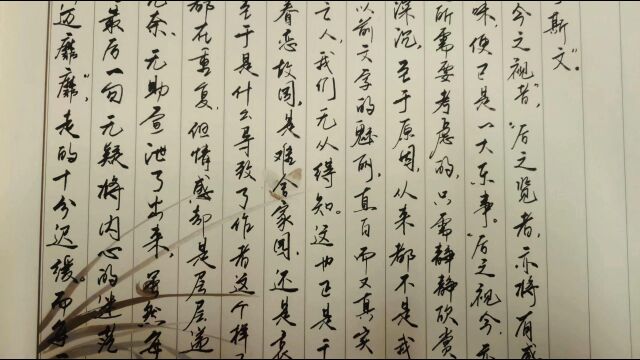 斯文”。
今之视昔”，“后之览者，亦将有感
味，便已是一大乐事。“后之视今，
所需要考虑的，只需静静欣赏
深沉，至于原因，从来都不是我
以前文字的魅力，直白而又真实
之人，我们无从得知。这也已是千
眷恋故国，是难舍家国，还是哀
至于是什么导致了作者这个样
都在重复，但情感却是层层递
无奈、无助宣泄了出来，虽然每
最后一句无疑将内心的迷茫
迈靡靡”，走的十分迟缓。而每